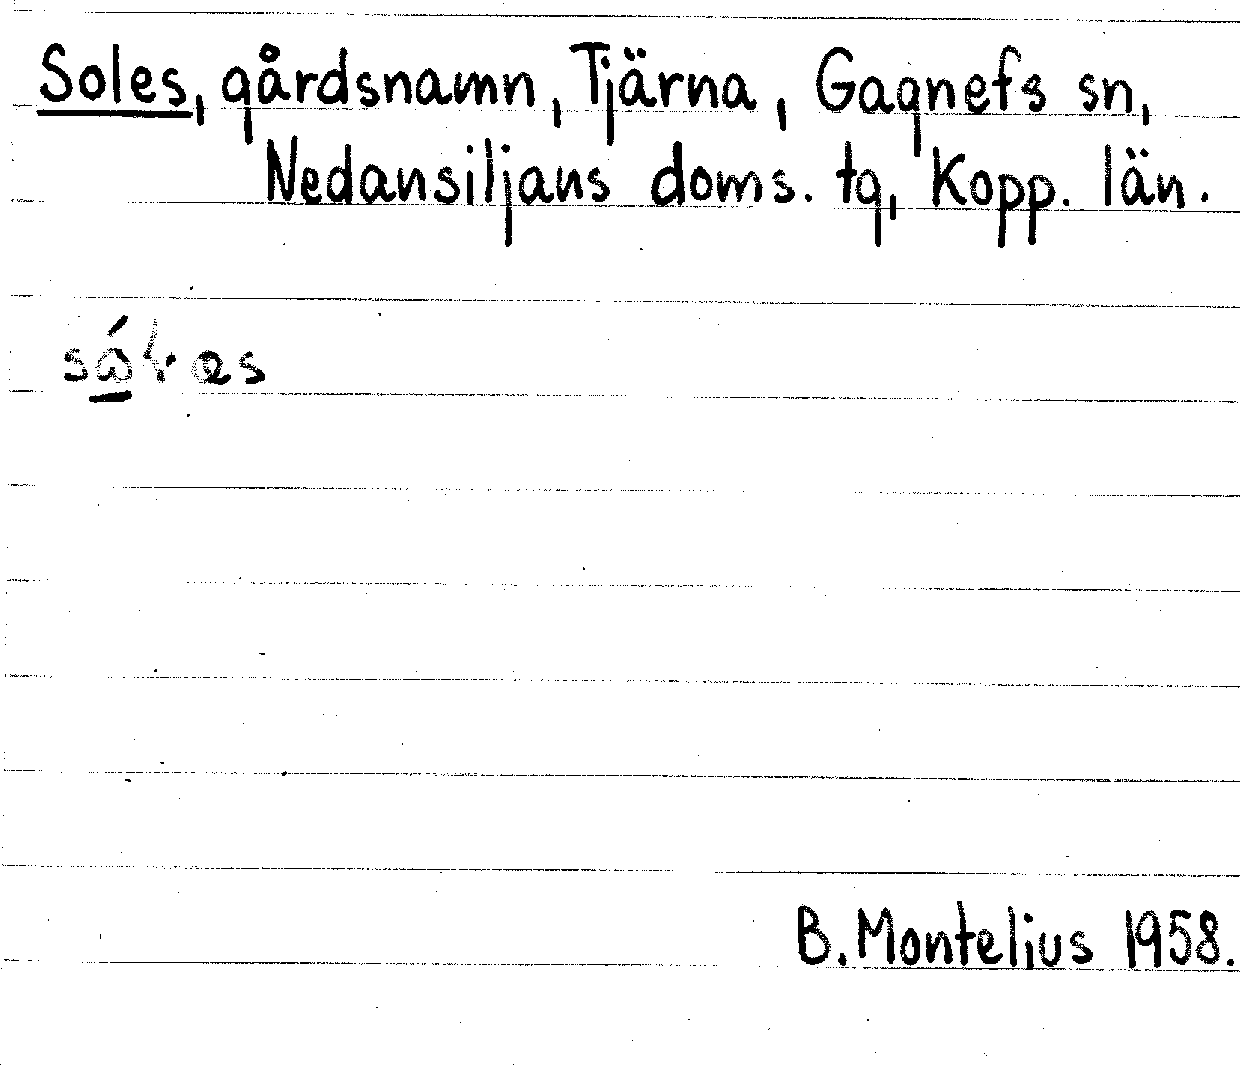 Soles, gårdsnamn, Tjärna, Gagnefs sn,
Nedansiljans doms. tg, Kopp. län.
B. Montelius 1958.